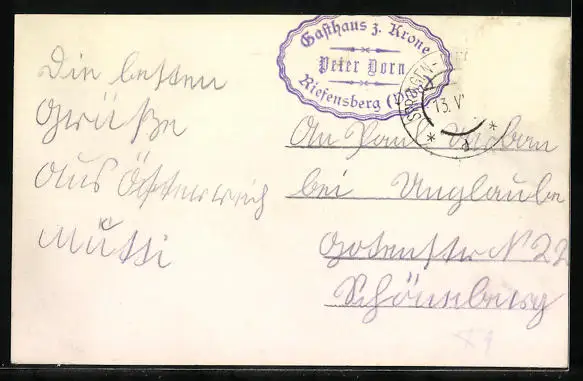 Die besten
Grüße
aus Österreich
Mutti
Gasthaus z. Krone
Peter Dorn
Riefensberg
13. V
An
bei Unglaube
Gotenstr N 22
Schöneberg